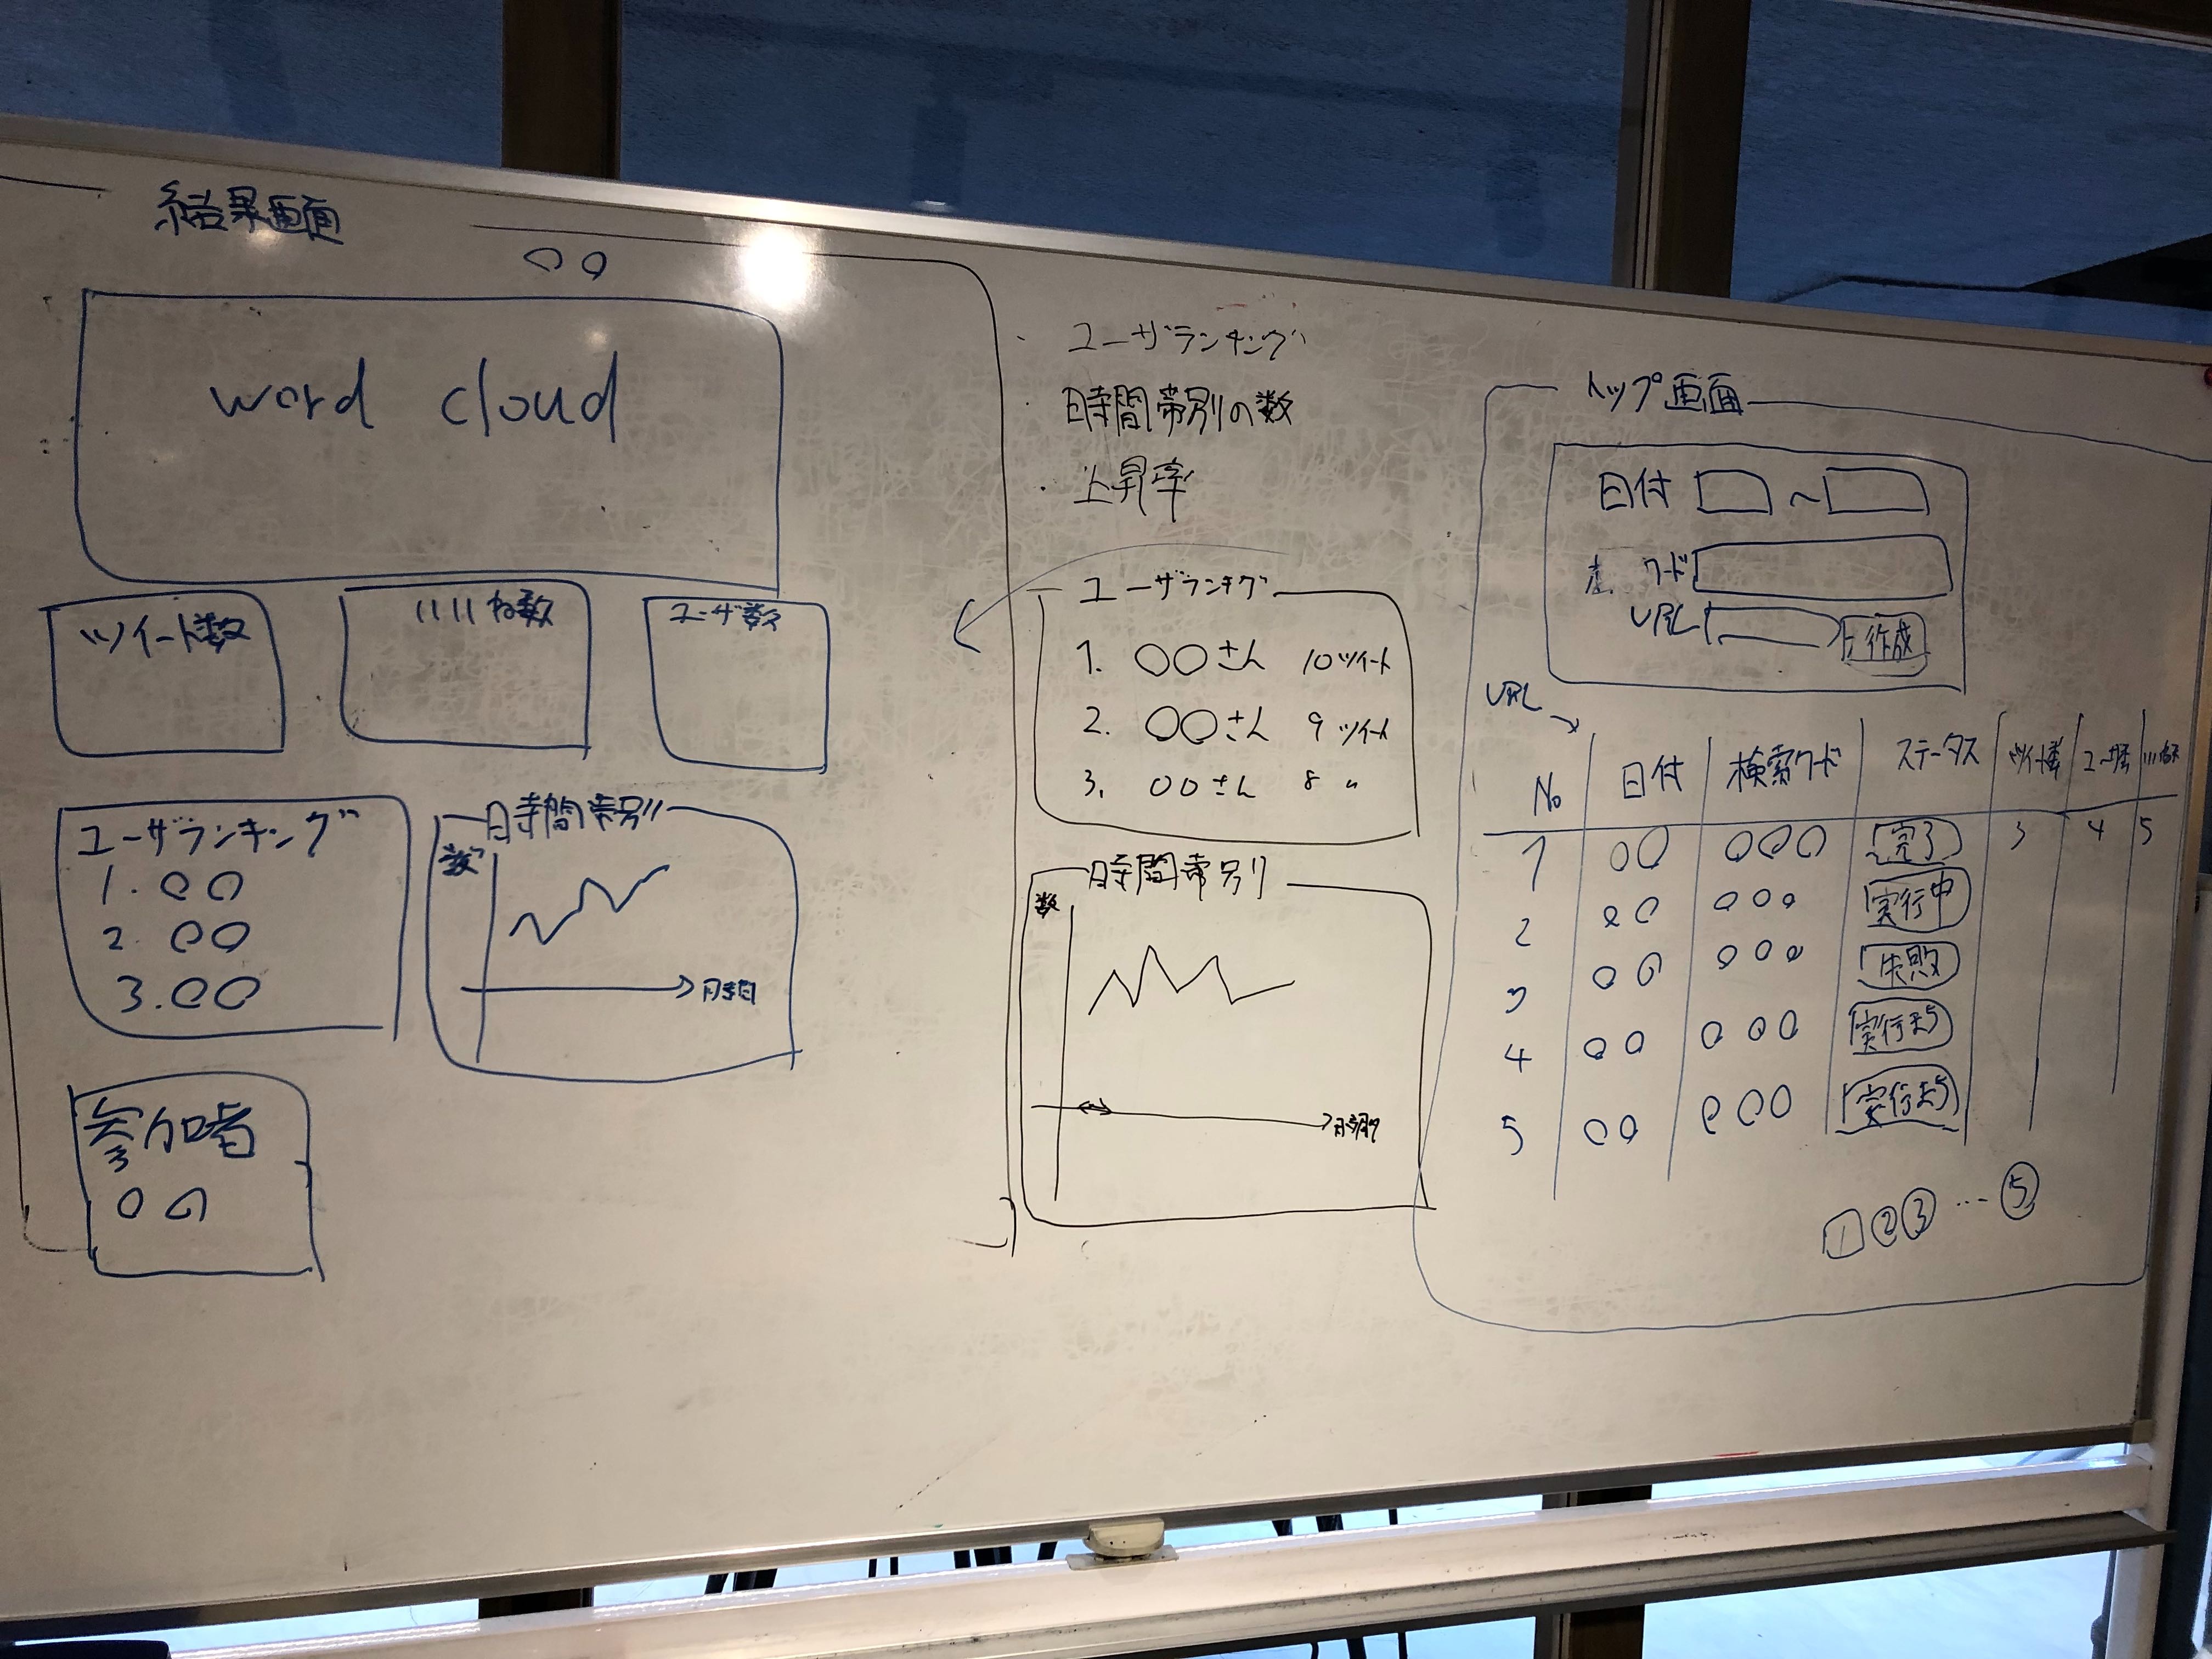 結果画面
○○
word cloud
ツイート数
いいね数
ユーザ数
ユーザランキング
1. ○○
2. ○○
3. ○○
時間帯別
数
時間
参加者
○○
・ユーザランキング
・時間帯別の数
・上昇率
ユーザランキング
1. ○○さん 10ツイート
2. ○○さん 9ツイート
3. ○○さん 8 〃
時間帯別
数
時間
トップ画面
日付 ~
ワード
URL 作成
URL
No 日付 検索ワード ステータス ツイート数 ユーザ数 いいね数
1 ○○ ○○○ 完了 3 4 5
2 ○○ ○○○ 実行中
3 ○○ ○○○ 失敗
4 ○○ ○○○ 実行待ち
5 ○○ ○○○ 実行待ち
1 2 3 … 5